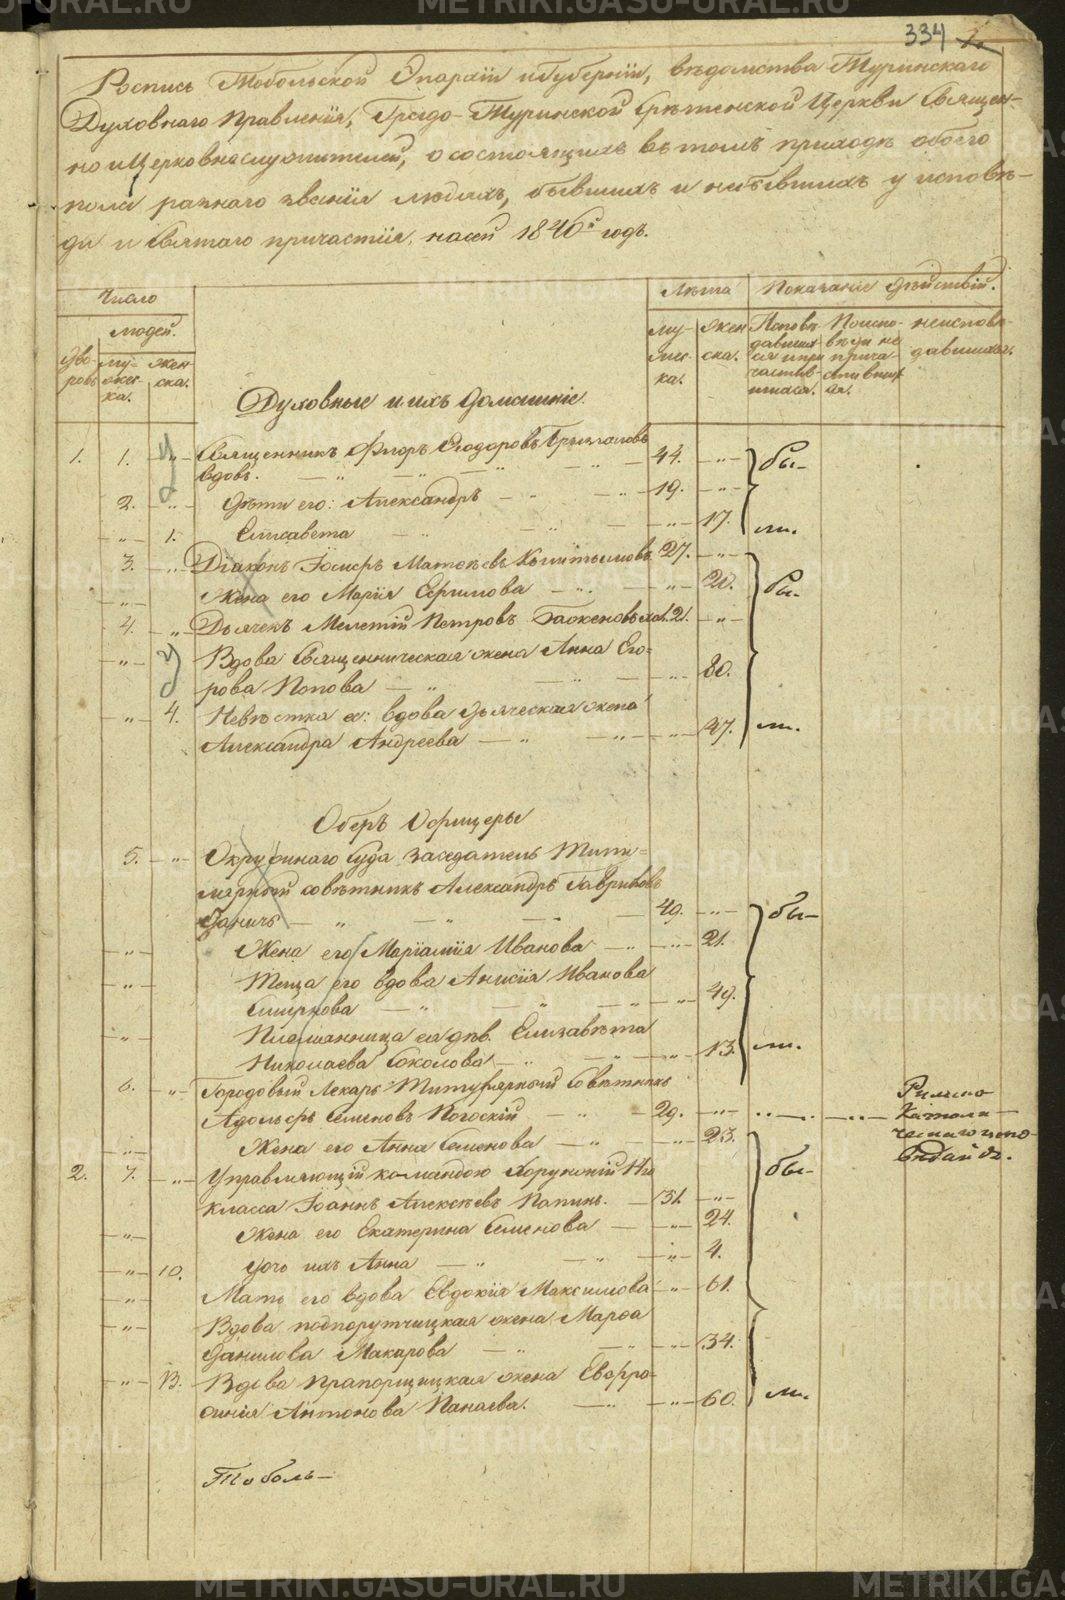 334 1.
Роспись Тобольской Епархіи и Губерніи, вѣдомства Туринскаго
Духовнаго Правленія, Градо-Туринской Срѣтенской Церкви Священ-
но и Церковнослужителей, о состоящихъ въ томъ приходѣ обоего
пола разнаго званія людяхъ, бывшихъ и небывшихъ у исповѣ-
ди и Святаго причастія, на сей 1846й годъ.
Число Лѣта Показаніе дѣйствій.
людей. му- жен Исповѣ- Поиспо- неисповѣ-
Дво- му- жен- жес- ска. давших вѣди не давшихся.
ровъ жес- ска. ка. ся и при- прича-
ка. частив- стивших
шихся. ся.
Духовные и ихъ домашніе.
1. 1. -"- Священникъ Флоръ Ѳеодоровъ
вдовъ. 44. -"- бы-
2. -"- Дѣти его: Александръ 19. -"-
-"- 1. Елисавета -"- 17. ли.
3. -"- Діаконъ Іосифъ Матѳеевъ 27. -"-
-"- Жена его Марія Ефимова -"- 20. бы-
4. -"- Дьячекъ Мелетій Петровъ хол. 21. -"-
-"- Вдова Священническая жена Анна Его-
рова Попова -"- 80.
-"- 4. Невѣстка ея: вдова дьяческая жена
Александра Андреева -"- 47. ли.
Оберъ Офицеры
5. -"- Окружнаго Суда Засѣдатель Титу-
лярный совѣтникъ Александръ Гавриловъ
49. -"- бы-
-"- Жена его Маріамія Иванова -"- 21.
-"- Теща его вдова Анисія Иванова
Смирнова -"- 49.
-"- Племянница ея дѣв. Елизавѣта
Николаева Соколова -"- 13. ли.
6. -"- Городовый Лекарь Титулярный Совѣтникъ
Адольфъ Семеновъ Погоскій 29. -"- Римско
Католи-
ческаго испо-
вѣданія.
-"- Жена его Анна Семенова -"- 23.
2. 7. -"- Управляющій командою Хорунжій 14го
класса Іоаннъ Алексѣевъ Папинъ. 31. -"- бы-
-"- Жена его Екатерина Семенова -"- 24.
-"- 10. Дочь ихъ Анна -"- 4.
-"- Мать его вдова Евдокія Максимова -"- 61.
-"- Вдова подпорутчицкая жена Марѳа
Данилова Макарова -"- 34.
-"- 13. Вдова Прапорщицкая жена Евфро-
синія Антонова Панаева. -"- 60. ли.
Тоболь-
METRIKI.GASO-URAL.RU